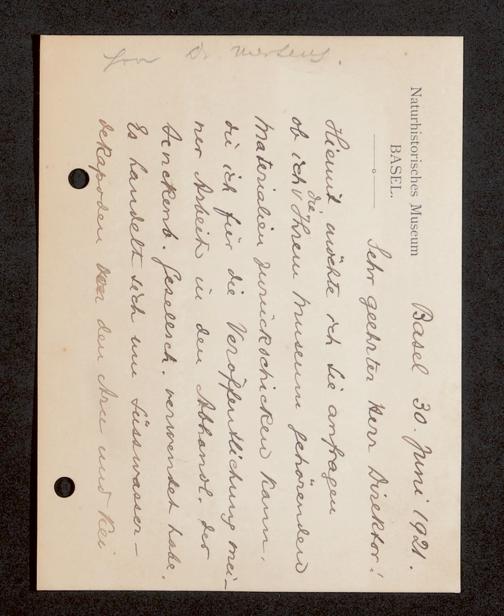 Naturhistorisches Museum
BASEL.
Basel 30. Juni 1921.
Sehr geehrter Herr Direktor!
Hiemit möchte ich Sie anfragen
ob ich die Ihrem Museum gehörenden
Materialien zurückschicken kann,
die ich für die Veröffentlichung mei-
ner Arbeit in den Abhandl. der
Senckenb. Gesellsch. verwendet habe.
Es handelt sich um Süsswasser-
dekapoden der den Aru und Kei
Dr. Mertens.